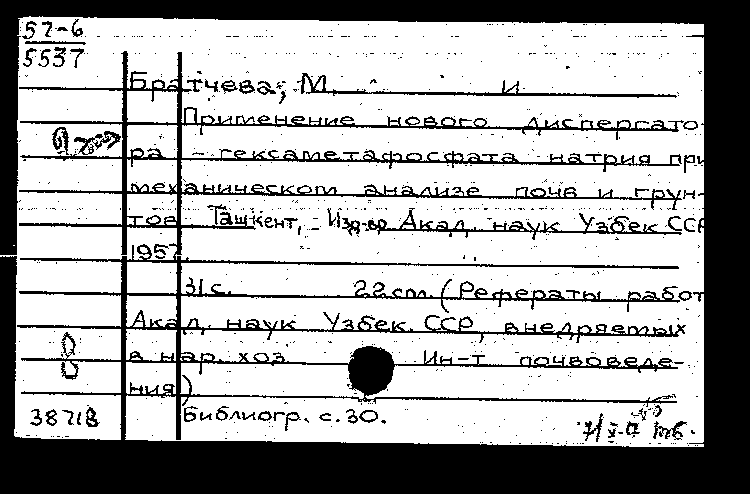 57-6
5537
Братчева, М. и
Применение нового диспергато-
ра - гексаметафосфата натрия при
механическом анализе почв и грун-
тов Ташкент, - Изд-во Акад. наук Узбек ССР
1957.
31 с. 22 см. (Рефераты работ
Акад. наук Узбек. ССР, внедряемых
в нар. хоз Ин-т почвоведе-
ния)
38718 Библиогр. с. 30.